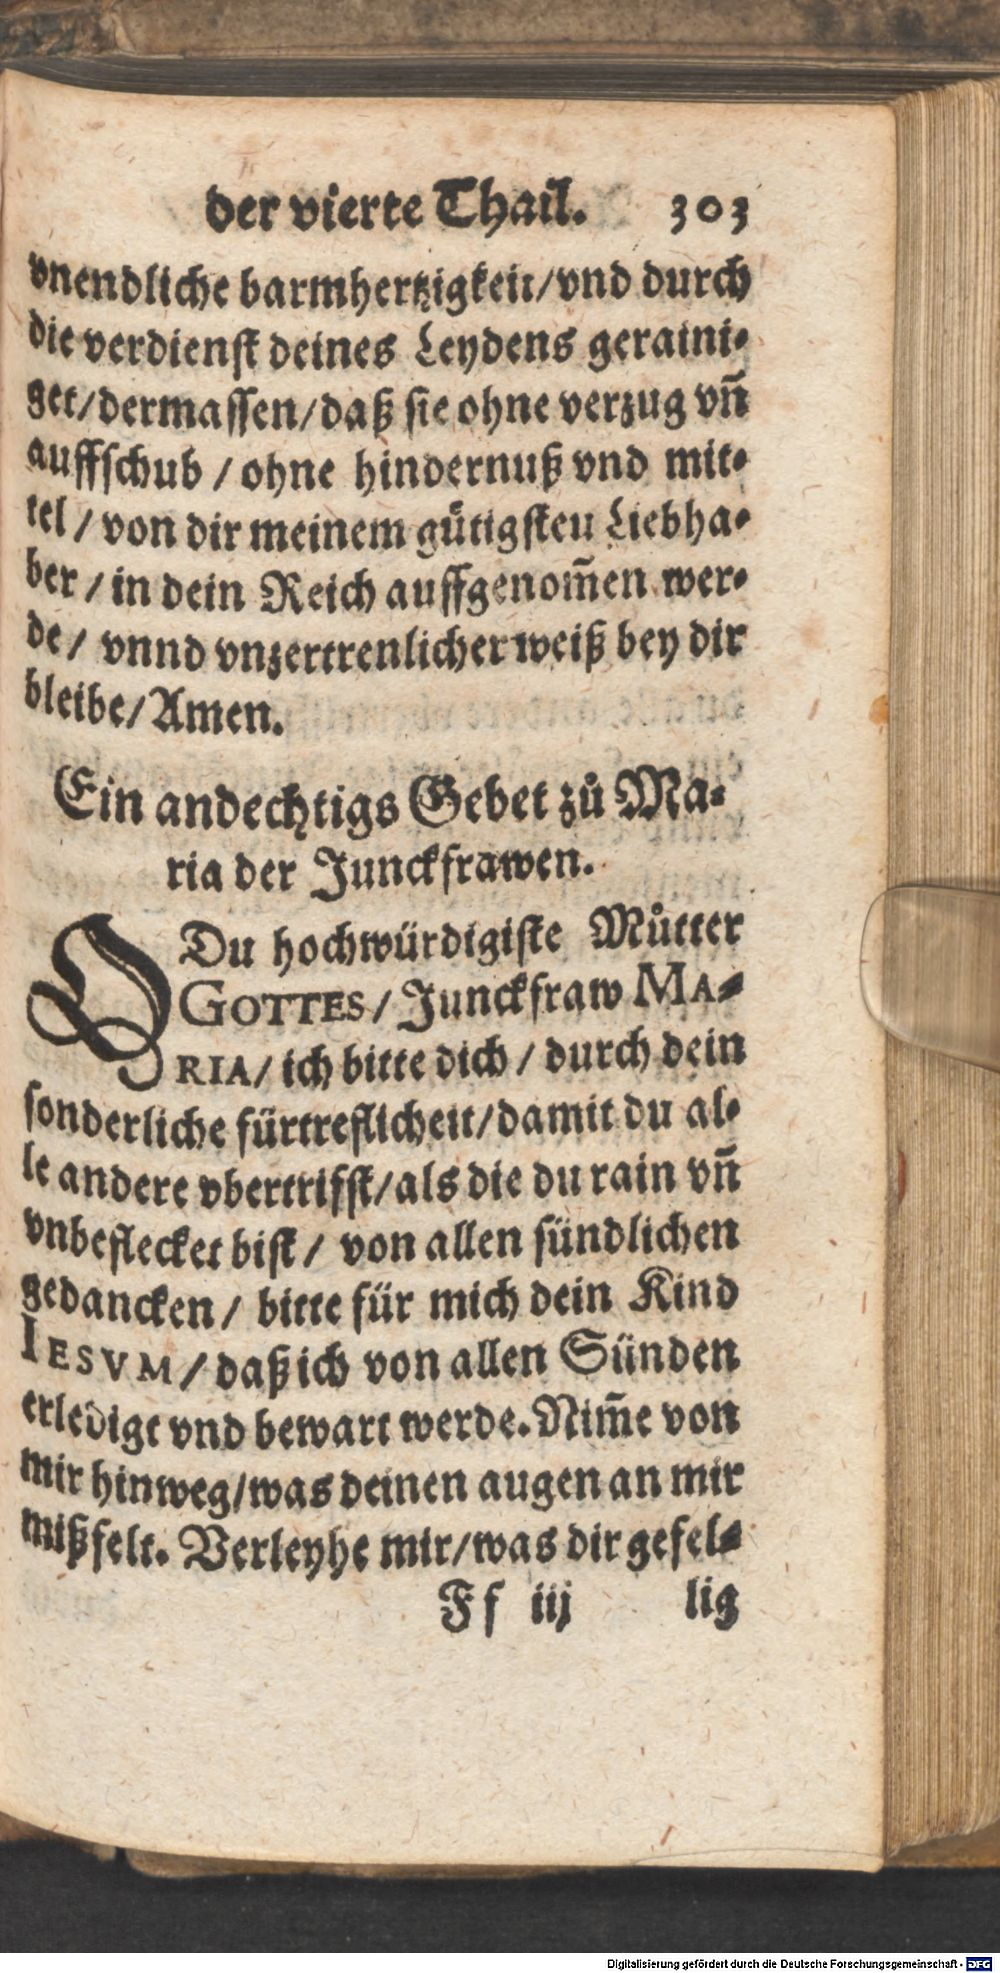 der vierte Thail. 303
vnendliche barmhertzigkeit/vnd durch
die verdienst deines Leydens geraini-
get/dermassen/daß sie ohne verzug vñ
auffschub / ohne hindernuß vnd mit-
tel / von dir meinem gütigsten Liebha-
ber / in dein Reich auffgenom̃en wer-
de / vnnd vnzertrenlicher weiß bey dir
bleibe/Amen.
Ein andechtigs Gebet zů Ma-
ria der Junckfrawen.
O Du hochwürdigiste Můtter
GOTTES / Junckfraw MA-
RIA / ich bitte dich / durch dein
sonderliche fürtreflicheit/damit du al-
le andere vbertrifft/als die du rain vñ
vnbeflecket bist / von allen sündlichen
gedancken / bitte für mich dein Kind
IESVM / daß ich von allen Sünden
erledigt vnd bewart werde. Nim̃e von
mir hinweg/was deinen augen an mir
mißfelt. Verleyhe mir/was dir gefel-
Ff iij lig
Digitalisierung gefördert durch die Deutsche Forschungsgemeinschaft - DFG